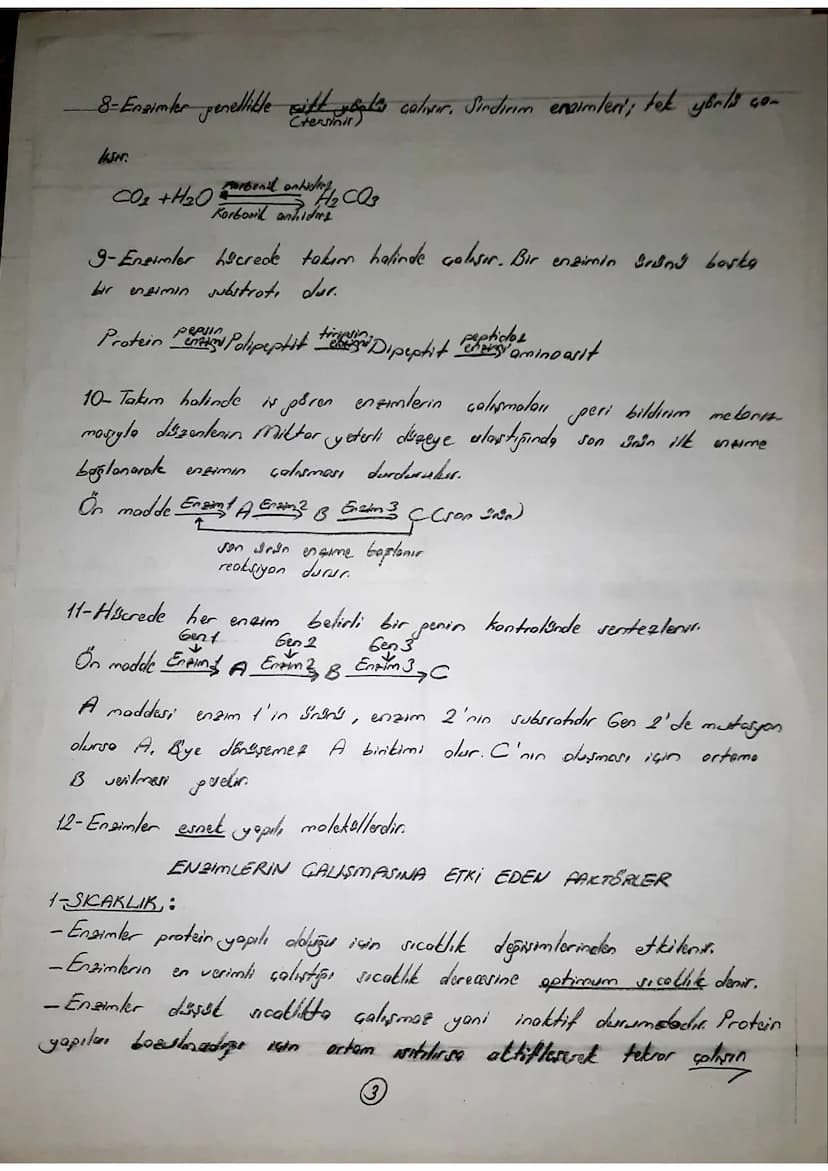 8-Enzimler genellikle çift yönlü çalışır. Sindirim enzimleri; tek yönlü ça-
(tersinir)
lışır.
karbonik anhidraz
CO2 + H2O ⇌ H2CO3
Karbonik anhidraz
9-Enzimler hücrede takım halinde çalışır. Bir enzimin ürünü başka
bir enzimin substratı dır.
Protein pepsin enzimi → Polipeptit tiripsin enzimi → Dipeptit peptidaz enzimi → aminoasit
10- Takım halinde iş gören enzimlerin çalışmaları geri bildirim mekaniz-
masıyla düzenlenir. Miktar yeterli düzeye ulaştığında son ürün ilk enzime
bağlanarak enzimin çalışması durdurulur.
Ön madde Enzim 1 → A Enzim 2 → B Enzim 3 → C (son ürün)
son ürün enzime bağlanır
reaksiyon durur.
11-Hücrede her enzim belirli bir genin kontrolünde sentezlenir.
Gen 1 Gen 2 Gen 3
Ön madde Enzim 1 → A Enzim 2 → B Enzim 3 → C
A maddesi enzim 1'in ürünü, enzim 2'nin subsratıdır Gen 2'de mutasyon
olursa A, B'ye dönüşemez A birikimi olur. C'nin oluşması için ortama
B verilmesi gerekir.
12-Enzimler esnek yapılı moleküllerdir.
ENZİMLERİN ÇALIŞMASINA ETKİ EDEN FAKTÖRLER
1-SICAKLIK:
- Enzimler protein yapılı olduğu için sıcaklık değişimlerinden etkilenir.
- Enzimlerin en verimli çalıştığı sıcaklık derecesine optimum sıcaklık denir.
- Enzimler düşük sıcaklıkta çalışmaz yani inaktif durumdadır. Protein
yapıları bozulmadığı için ortam ısıtılırsa aktifleşerek tekrar çalışır
3